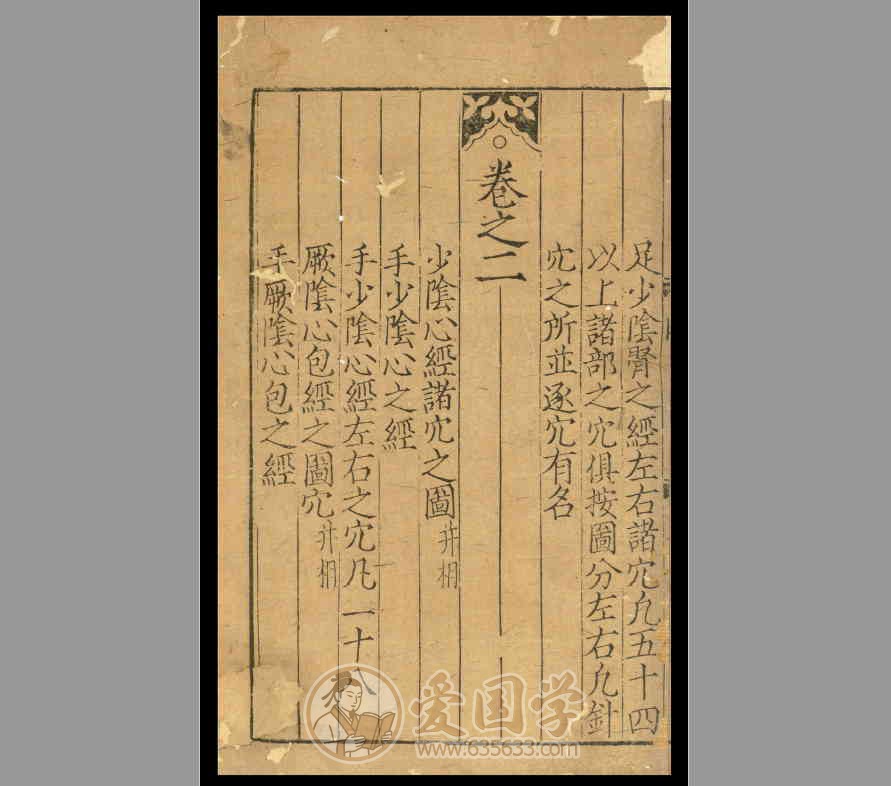 足少陰腎之經左右諸穴凢五十四
以上諸部之穴俱按圖分左右凢針
穴之所並逐穴有名
卷之二
少陰心經諸穴之圖并相
手少陰心之經
手少陰心經左右之穴凡一十八
厥陰心包經之圖穴并相
手厥陰心包之經
爱国学
www.635633.com